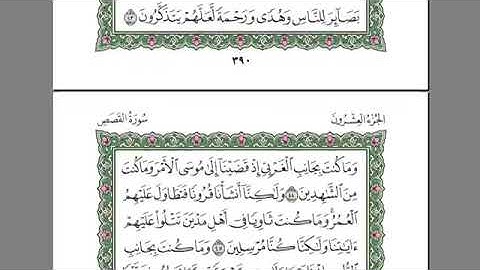 بَصَآئِرَ لِلنَّاسِ وَهُدًى وَرَحْمَةً لَّعَلَّهُمْ يَتَذَكَّرُونَ ٤٣
٣٩٠
الجزء العشرون سورة القصص
وَمَا كُنتَ بِجَانِبِ ٱلْغَرْبِيِّ إِذْ قَضَيْنَآ إِلَىٰ مُوسَى ٱلْأَمْرَ وَمَا كُنتَ
مِنَ ٱلشَّٰهِدِينَ ٤٤ وَلَٰكِنَّآ أَنشَأْنَا قُرُونًا فَتَطَاوَلَ عَلَيْهِمُ
ٱلْعُمُرُ وَمَا كُنتَ ثَاوِيًا فِىٓ أَهْلِ مَدْيَنَ تَتْلُوا۟ عَلَيْهِمْ
ءَايَٰتِنَا وَلَٰكِنَّا كُنَّا مُرْسِلِينَ ٤٥ وَمَا كُنتَ بِجَانِبِ